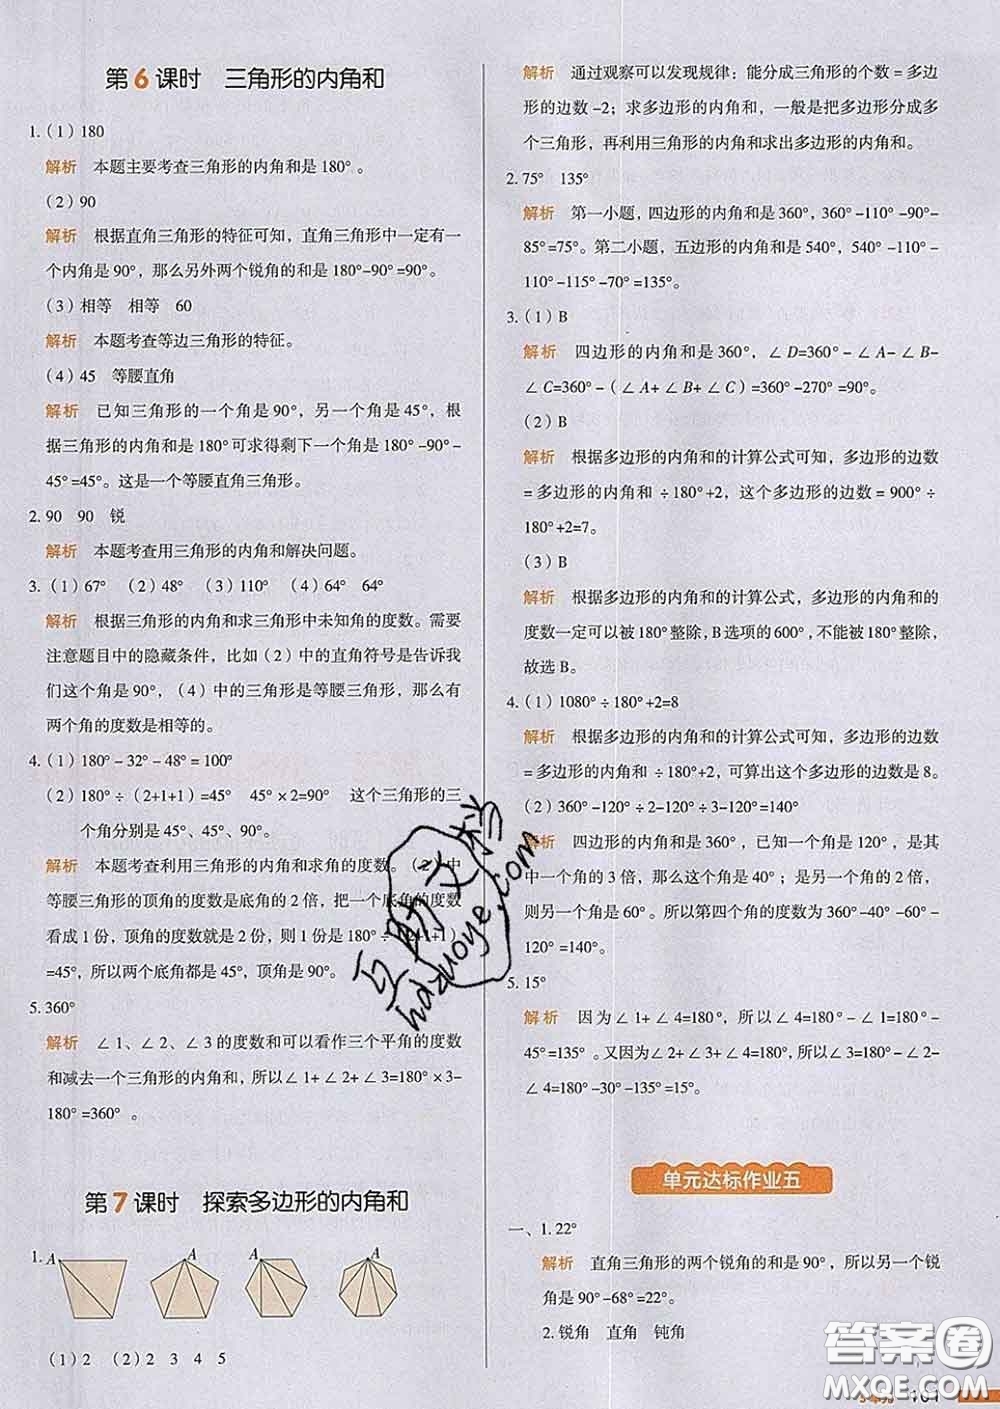 第6课时 三角形的内角和
1.(1)180
解析 本题主要考查三角形的内角和是180°。
(2)90
解析 根据直角三角形的特征可知，直角三角形中一定有一
个内角是90°，那么另外两个锐角的和是180°-90°=90°。
(3)相等 相等 60
解析 本题考查等边三角形的特征。
(4)45 等腰直角
解析 已知三角形的一个角是90°，另一个角是45°，根
据三角形的内角和是180°可求得剩下一个角是180°-90°-
45°=45°。这是一个等腰直角三角形。
2. 90 90 锐
解析 本题考查用三角形的内角和解决问题。
3.(1)67° (2)48° (3)110° (4)64° 64°
解析 根据三角形的内角和求三角形中未知角的度数。需要
注意题目中的隐藏条件，比如(2)中的直角符号是告诉我
们这个角是90°，(4)中的三角形是等腰三角形，那么有
两个角的度数是相等的。
4.(1)180°-32°-48°=100°
(2)180°÷(2+1+1)=45° 45°×2=90° 这个三角形的三
个角分别是45°、45°、90°。
解析 本题考查利用三角形的内角和求角的度数。(2)中
等腰三角形的顶角的度数是底角的2倍，把一个底角的度数
看成1份，顶角的度数就是2份，则1份是180°÷(2+1+1)
=45°，所以两个底角都是45°，顶角是90°。
5. 360°
解析 ∠1、∠2、∠3的度数和可以看作三个平角的度数
和减去一个三角形的内角和，所以∠1+∠2+∠3=180°×3-
180°=360°。
第7课时 探索多边形的内角和
1. A A A A
(1)2 (2)2 3 4 5
解析 通过观察可以发现规律：能分成三角形的个数=多边
形的边数-2；求多边形的内角和，一般是把多边形分成多
个三角形，再利用三角形的内角和求出多边形的内角和。
2. 75° 135°
解析 第一小题，四边形的内角和是360°，360°-110°-90°-
85°=75°。第二小题，五边形的内角和是540°，540°-110°-
110°-115°-70°=135°。
3.(1)B
解析 四边形的内角和是360°，∠D=360°-∠A-∠B-
∠C=360°-(∠A+∠B+∠C)=360°-270°=90°。
(2)B
解析 根据多边形的内角和的计算公式可知，多边形的边数
=多边形的内角和÷180°+2，这个多边形的边数=900°÷
180°+2=7。
(3)B
解析 根据多边形的内角和的计算公式，多边形的内角和的
度数一定可以被180°整除，B选项的600°，不能被180°整除，
故选B。
4.(1)1080°÷180°+2=8
解析 根据多边形的内角和的计算公式可知，多边形的边数
=多边形的内角和÷180°+2，可算出这个多边形的边数是8。
(2)360°-120°÷2-120°÷3-120°=140°
解析 四边形的内角和是360°，已知一个角是120°，是其
中一个角的3倍，那么这个角是40°；是另一个角的2倍，
则另一个角是60°。所以第四个角的度数为360°-40°-60°-
120°=140°。
5. 15°
解析 因为∠1+∠4=180°，所以∠4=180°-∠1=180°-
45°=135°。又因为∠2+∠3+∠4=180°，所以∠3=180°-∠2-
∠4=180°-30°-135°=15°。
单元达标作业五
一、1. 22°
解析 直角三角形的两个锐角的和是90°，所以另一个锐
角是90°-68°=22°。
2. 锐角 直角 钝角
答案圈
MXQE.COM
hdzuoye.com